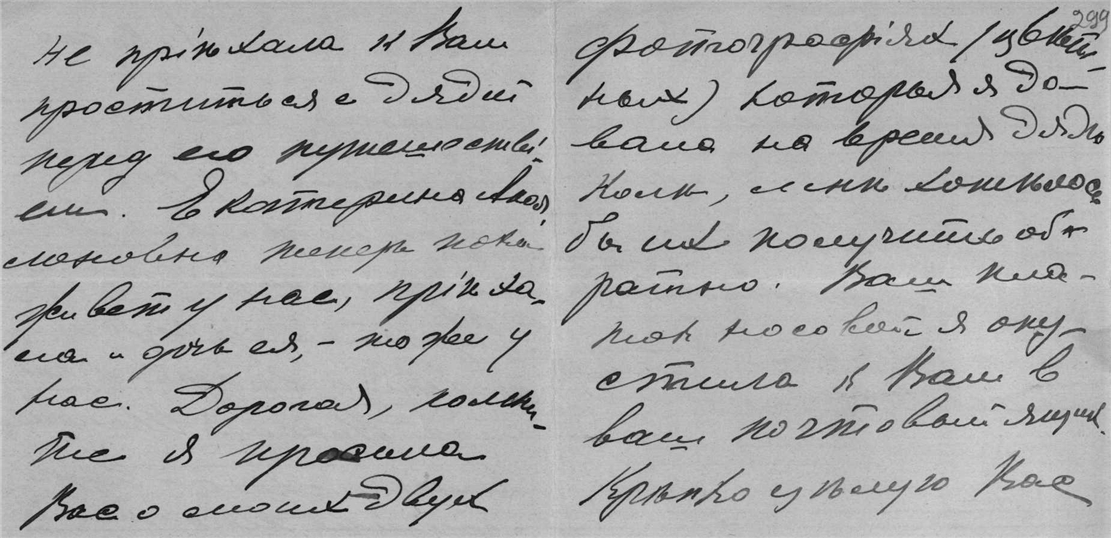 не пріѣхала к Вам
проститься с дядей
перед его путешестві-
ем. Екатерина Апол
лоновна теперь пока
живет у нас, пріѣха-
ла и дочь ея, – тоже у
нас. Дорогая, помни-
те я просила
Вас о моих двух
299
фотографіях (цвѣт-
ных) которыя я да-
вала на время дядѣ
Колѣ, мнѣ хотѣлось
бы их получить об-
ратно. Ваш пла-
ток носовой я опу-
стила к Вам в
ваш почтовый ящик.
Крѣпко цѣлую Вас